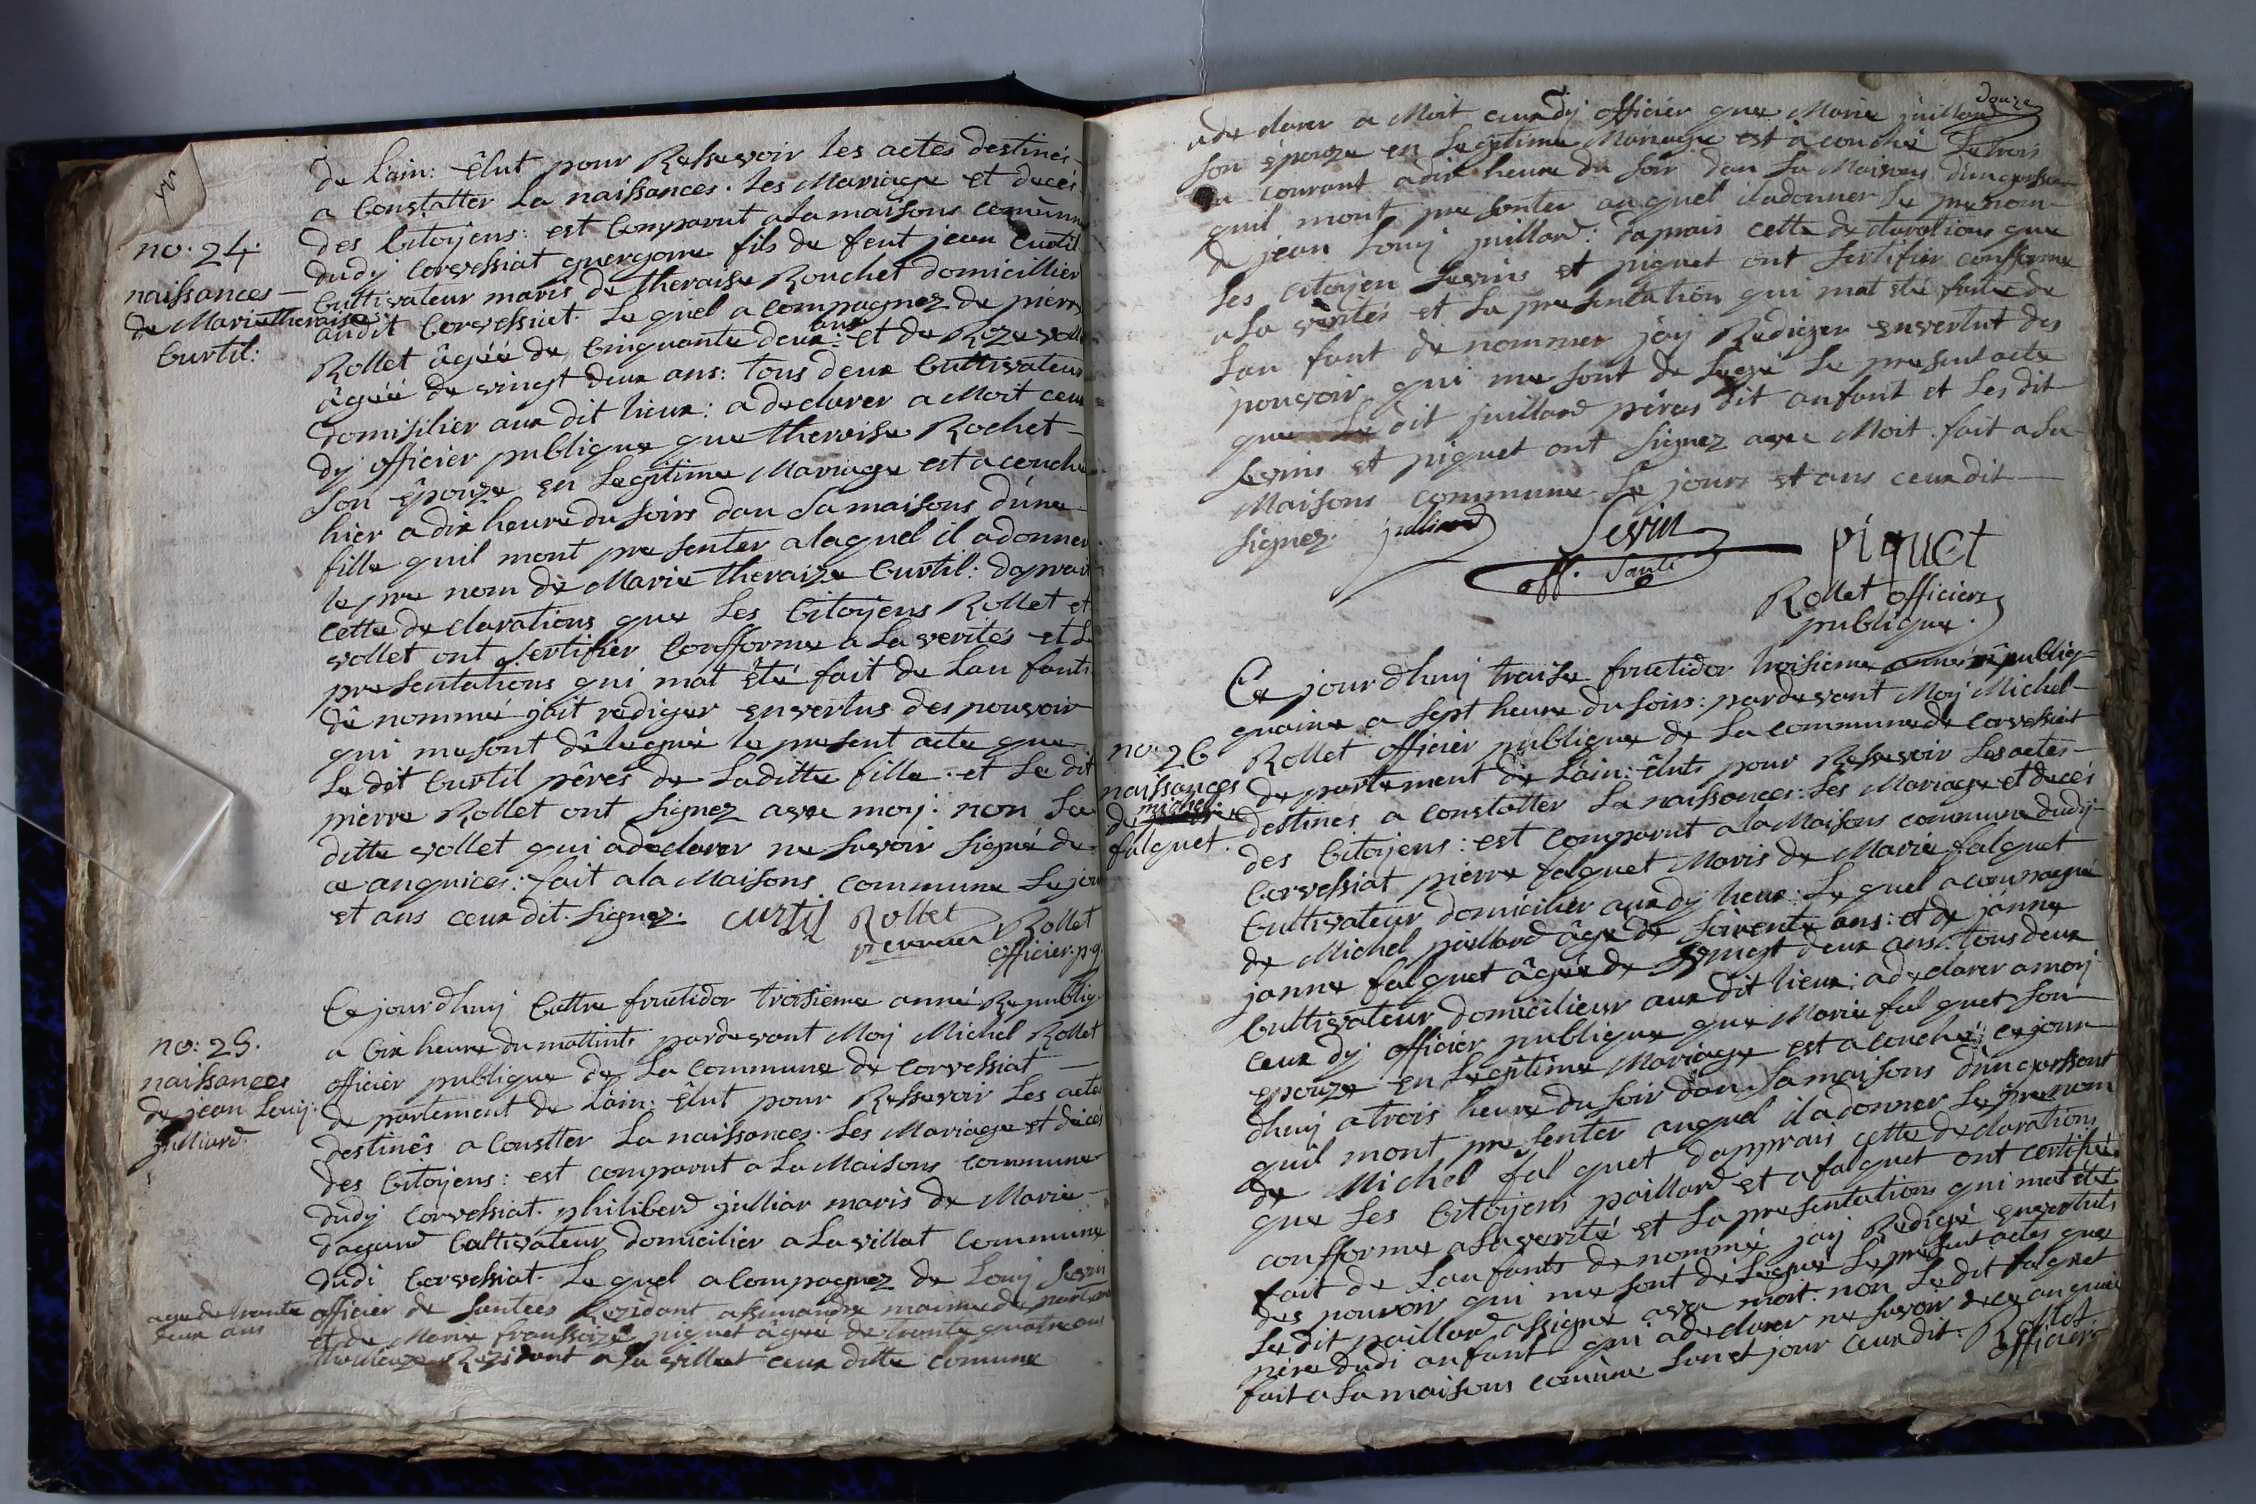 de Lain: êlut pour Ressevoir les actes destinés
a Constatter La naissances. les Mariage et decés
des Citoyens: est Comparut a la maisons comunne
dudy Corvessiat guergone fils de feut jean Curtil
no: 24.
naissances —
de Marie theraise
Curtil:
Cultivateur maris de theraise Rouchet domicillier
audit Corvessiat. Le quel a compagnez de pierre
Rollet âgéé de Cinquante deux ans: et de Roze voll
âgéé de vingt deux ans: tous deux Cultivateur
domisilier aux dit lieux: a declarer a Moit ceux
dy officier publique que theraise Rochet
Son êpouze en Legitime Mariage est a couche
hier a dix heure du soirs dan Sa maisons dune
fille quil mont pre senter a laquel il a donner
le pre nom de Marie theraize Curtil: daprai
cette de clarations que Les Citoyens Rollet et
vollet ont Sertifier Confforme a La verités et La
pre sentations qui mat êté fait de Lan fants
dê nommé jait rediger en vertus des pouvoir
qui me sont dêlegué le present acte que
Le dit Curtil pêres de Laditte fille. et Le dit
pierre Rollet ont Signez avec moy: non La
ditte vollet qui a declarer ne Savoir Signé de
ce anquices: fait a la Maisons commune Le jou
et ans ceux dit. Signez. Curtil Rollet
Rollet
officier. p. q.
Ce jourdhuy Cattre fructidor troisieme anné Republiq.
no: 25.
naissances
de jean Louij
julliard.
a Cix heure du mattints pardevant Moy Michel Rollet
officier publique de La Commune de Corvessiat —
de partement de Lain: êlut pour Ressevoir Les actes
destinês a Constter La naissances. Les Mariage et decés
des Citoyens: est comparut a La Maisons Commune
dudy Corvessiat. philiberd julliar maris de Marie
dagand Cultivateur domicilier a La villat Commune
dudi Corvessiat. Le quel a Compagnez de Louy Sevin
age de trante
deux ans
officier de Santées Rezidant
et de Marie franssoize piquet âgéé de trante quatre ans
Rezidant a La villat ceux ditte comune
douze
a de clarer a Moit ceux dy officier que Marie juillard
Son épouze en Legitime Mariage est a couché Le trois
du courant a dix heure du Soir dan Sa Maisons dun garsson
quil mont pre senter auquel il a donner Le pre nom
de jean Louy juillard: daprais cette de clarations que
Les Citoyen Sevins et piquet ont Sertifier confforme
a La vérités et La pre sentation qui mat eté faite de
Lan fant de nommer jay Rediger en vertut des
pouvoir qui me sont de Legué Le present acte
que Le dit juillard péres dit anfant et Les dit
Sevins et piquet ont Signez avec Moit. fait a La
Maisons commune Le jours et ans ceux dit —
Signez. julliard Sevin
off. Santé
piquet
Rollet officiers
publique.
Ce jourdhuy traise fructidor troisieme anné républiq
quaine a Sept heure du Soirs: pardevant Moy Michel
no: 26
naissances
de michel
falquet.
Rollet officier publique de La commune de Corvessiat
de partement de Lain: êluts pour Ressevoir Les actes
destinés a constatter La naissances: Les Mariage et decés
des Citoyens: est Comparut a la Maisons commune dudy
Corvessiat pierre falquet Maris de Marie falquet
Cultivateur domicilier aux dy lieux: Le quel a compagné
de Michel paillard âge de Soixente ans: et de janne
janne falquet âgée de vingt deux ans: tous deux
Cultivateur domicilieur aux dit lieux: a declarer a moy
ceux dy officier publique que Marie falquet Son
epouze en Legitime Mariage est a couché ce jour
dhuy a trois heure du Soir dan Sa maisons dun garssont
quil mont pre senter auquel il a donner Le pre nom
de Michel falquet dapprais cette de clarations
que Les Citoyens paillard et a falquet ont certifié
confforme a La verité et La pre sentations qui mat êté
fait de Lan fants de nommé jay Redigé en vertuts
des pouvoir qui me sont de Legue Le present actes que
Le dit paillard a Signé avec moit: non Le dit falquet
pére dudi anfant qui a de clarer ne Savoir de ce an quice
fait a La maisons comune Lan et jour ceux dit. Rollet
officier